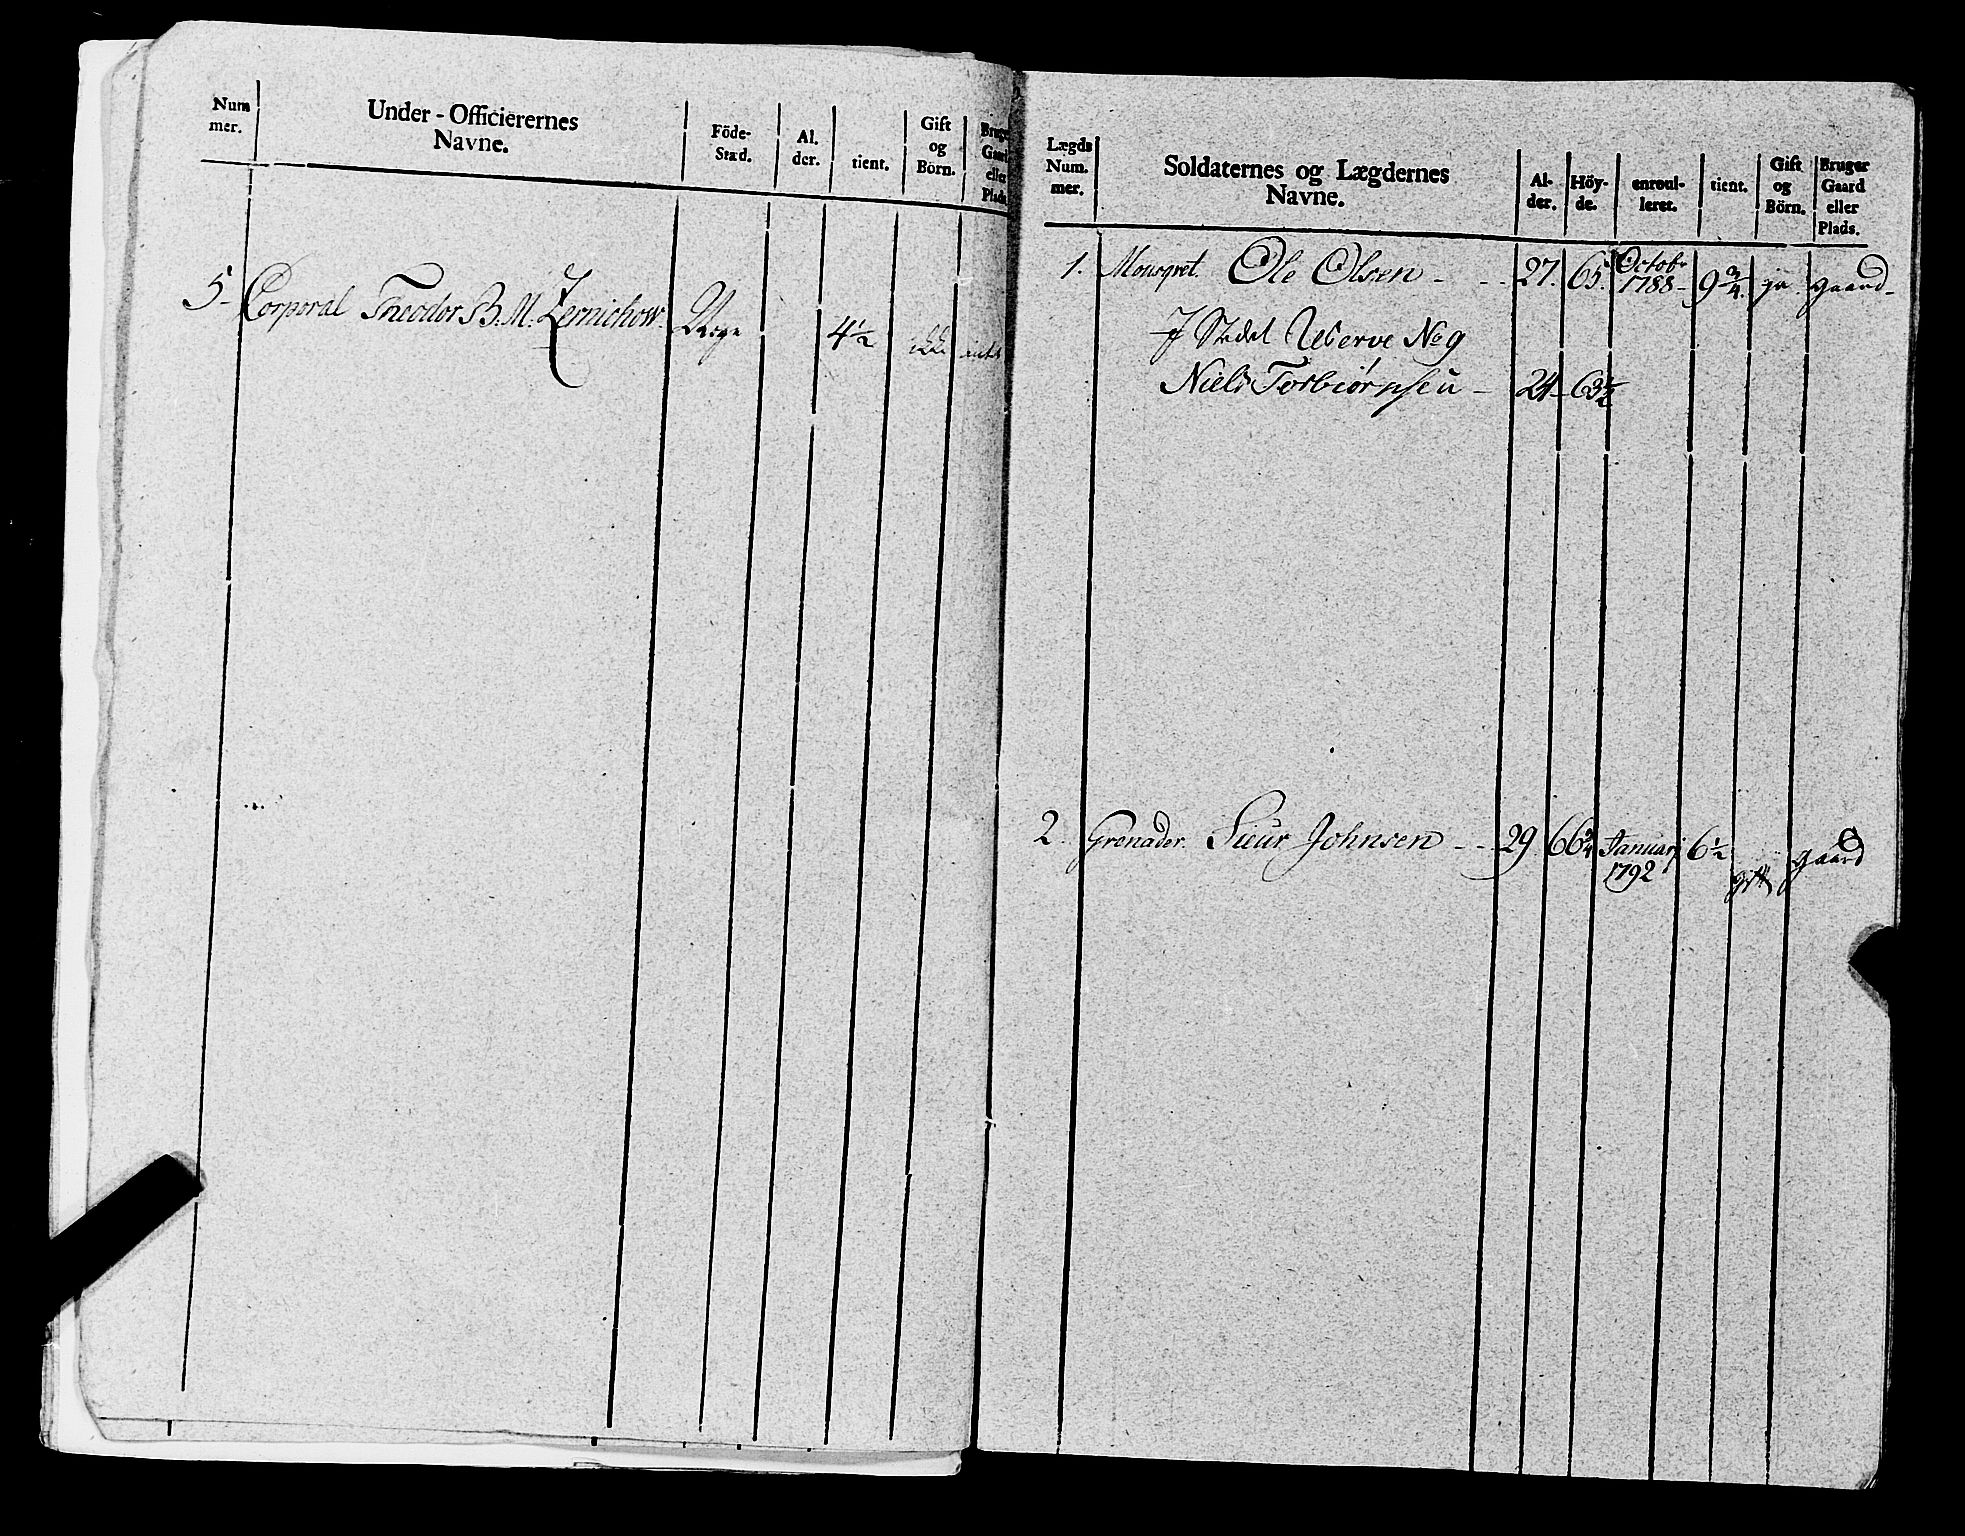 Num
mer.
Under - Officierernes
Navne.
Föde-
Stæd.
Al.
der.
tient.
Gift
og
Börn.
Bruger
Gaard
eller
Plads.
5 - Corporal Theodor B: M: Zernichow. 4½ ikke
Lægds
Num.
mer.
Soldaternes og Lægdernes
Navne.
Al-
der.
Höy-
de.
enroul-
leret.
tient.
Gift
og
Börn.
Bruger
Gaard
eller
Plads.
1. Mousqvet. Ole Olsen - - - 27. 65. Octobr 1788 - 9¾. ja gaard -
I Stedet Uværve No 9
Niels Torbiørnsen - 24 - 63½
2. Grenader. Siur Johnsen - - - 29 66¾ Januarj 1792 6½ gift gaard